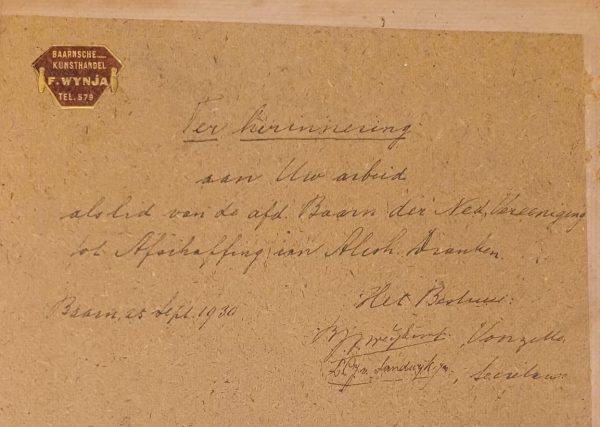 BAARNSCHE
KUNSTHANDEL
F. WYNJA
TEL. 579
Ter herinnering
aan Uw arbeid
als lid van de afd. Baarn der Ned. Vereeniging
tot Afschaffing van Alcoh. Dranken.
Het Bestuur:
Baarn, 25 Sept. 1930
Voorzitter
v. Landwijk jr., Secretaris